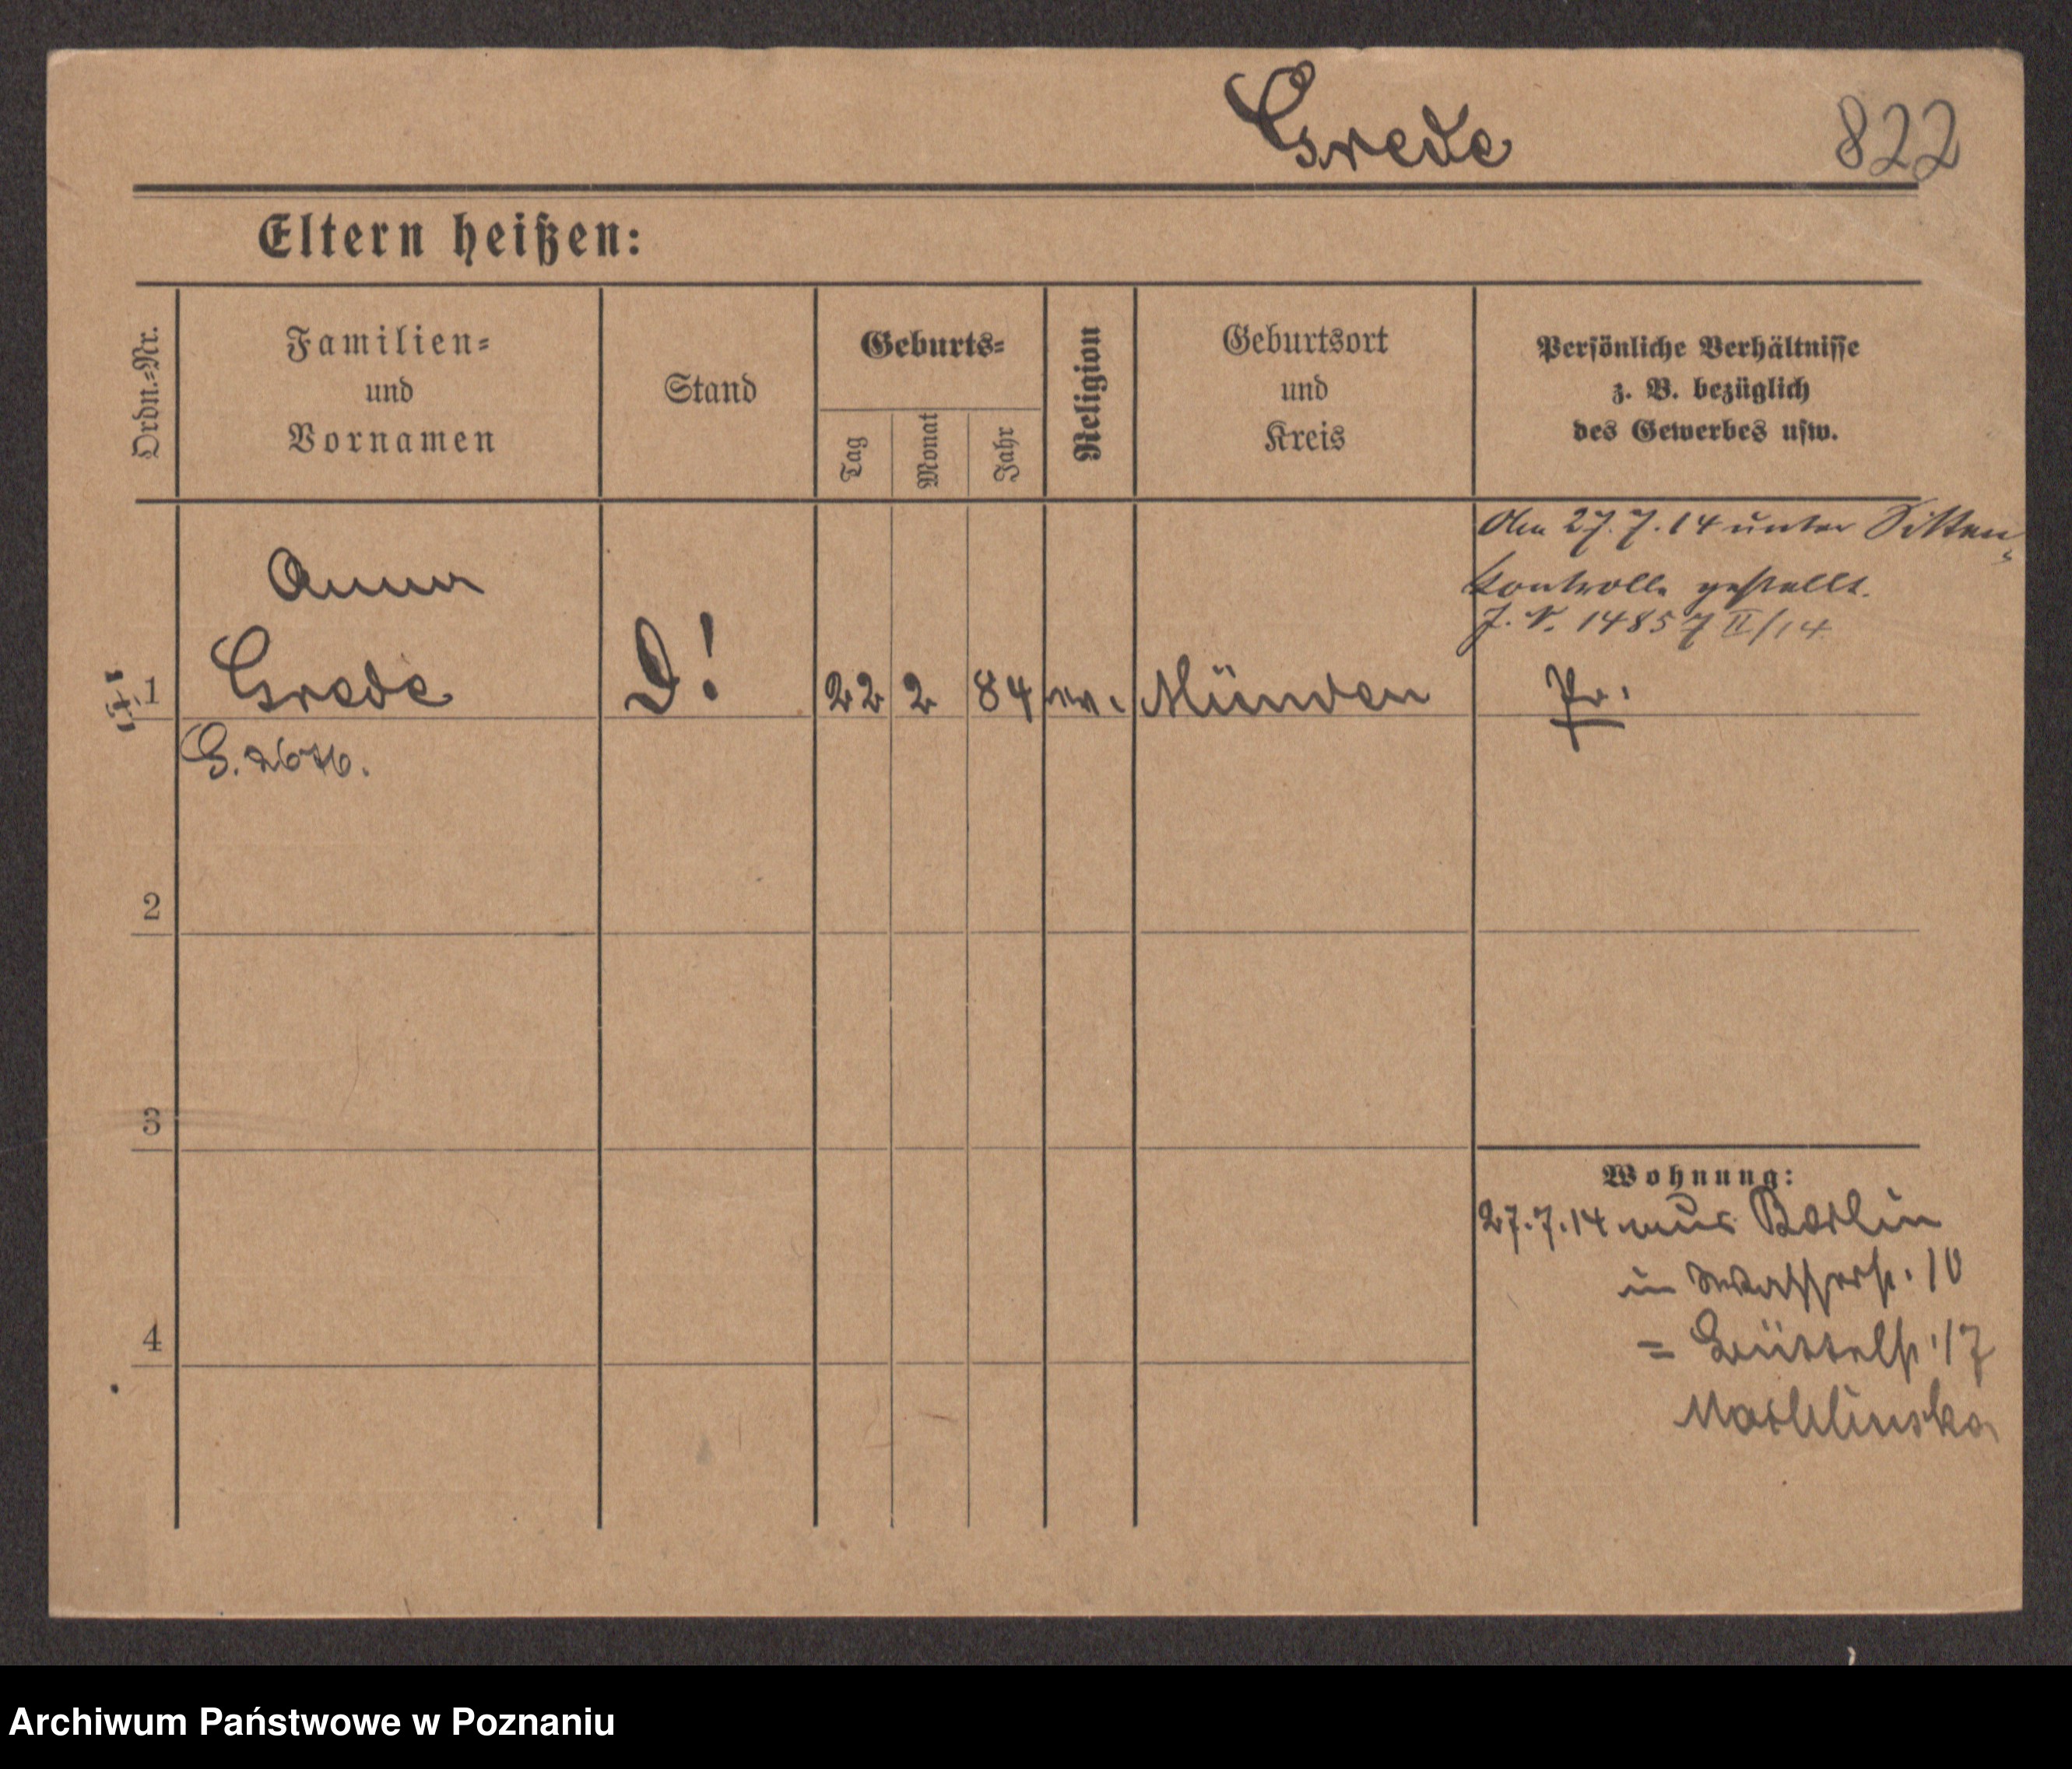 Grede 822
Eltern heißen:
Ordn.=Nr.
Familien=
und
Vornamen
Stand
Geburts=
Tag
Monat
Jahr
Religion
Geburtsort
und
Kreis
Persönliche Verhältnisse
z. B. bezüglich
des Gewerbes usw.
Am 27.7.14 unter Sitten-
kontrolle gestellt.
J. N. 14857 II/14
Anna
1 Grede D! 22 2 84 Münden Pr.
G. 2676.
2
3
4
Wohnung:
27.7.14 aus Berlin
in Wasserstr. 10
= Büttelstr. 17
Archiwum Państwowe w Poznaniu